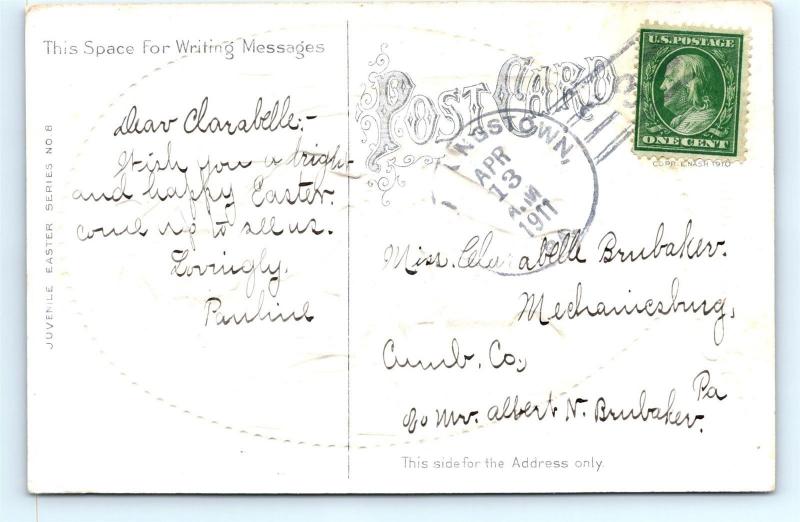 This Space For Writing Messages
JUVENILE EASTER SERIES NO. 8
Dear Clarabelle:-
Wish you a bright
and happy Easter.
come up to see us.
Lovingly,
Pauline
POST CARD
U.S. POSTAGE
ONE CENT
COPR. E. NASH 1910
NGSTOWN,
APR
13
A.M
1911
Miss. Clarabelle Brubaker.
Mechanicsburg,
Cumb. Co.,
Pa
c/o Mr. Albert N. Brubaker.
This side for the Address only.